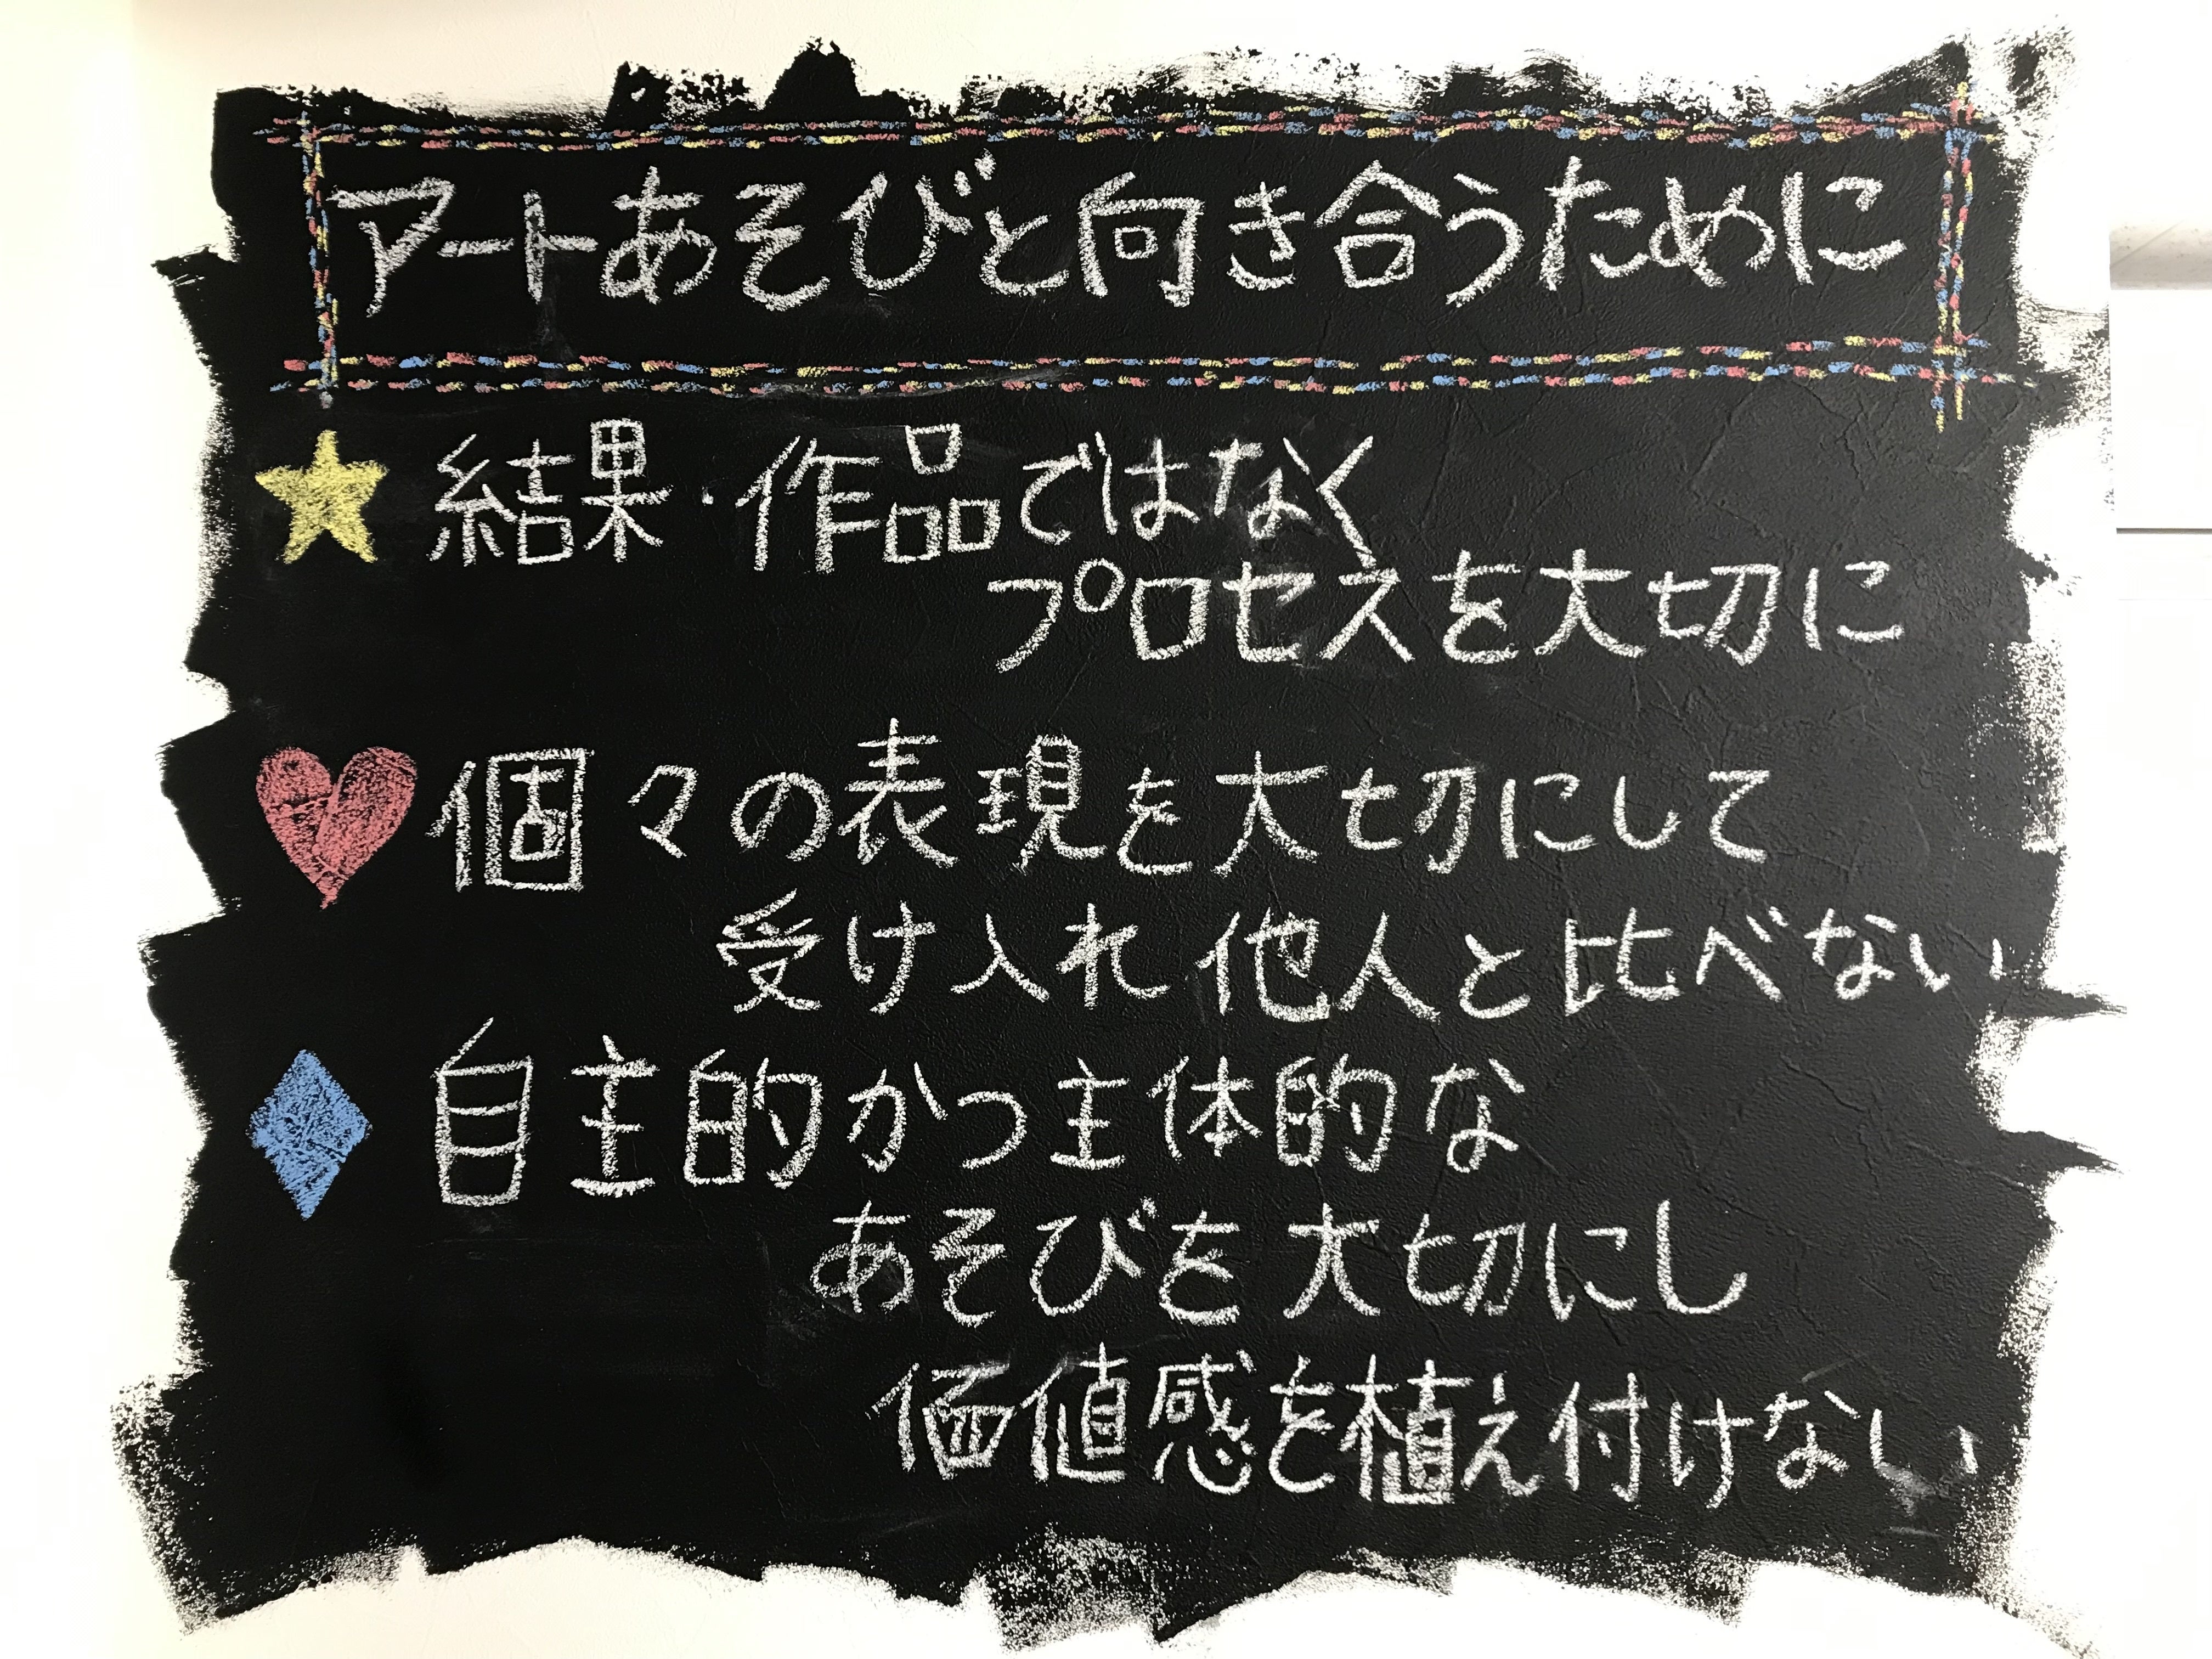 アートあそびと向き合うために
結果・作品ではなく
プロセスを大切に
個々の表現を大切にして
受け入れ他人と比べない
自主的かつ主体的な
あそびを大切にし
価値感を植え付けない